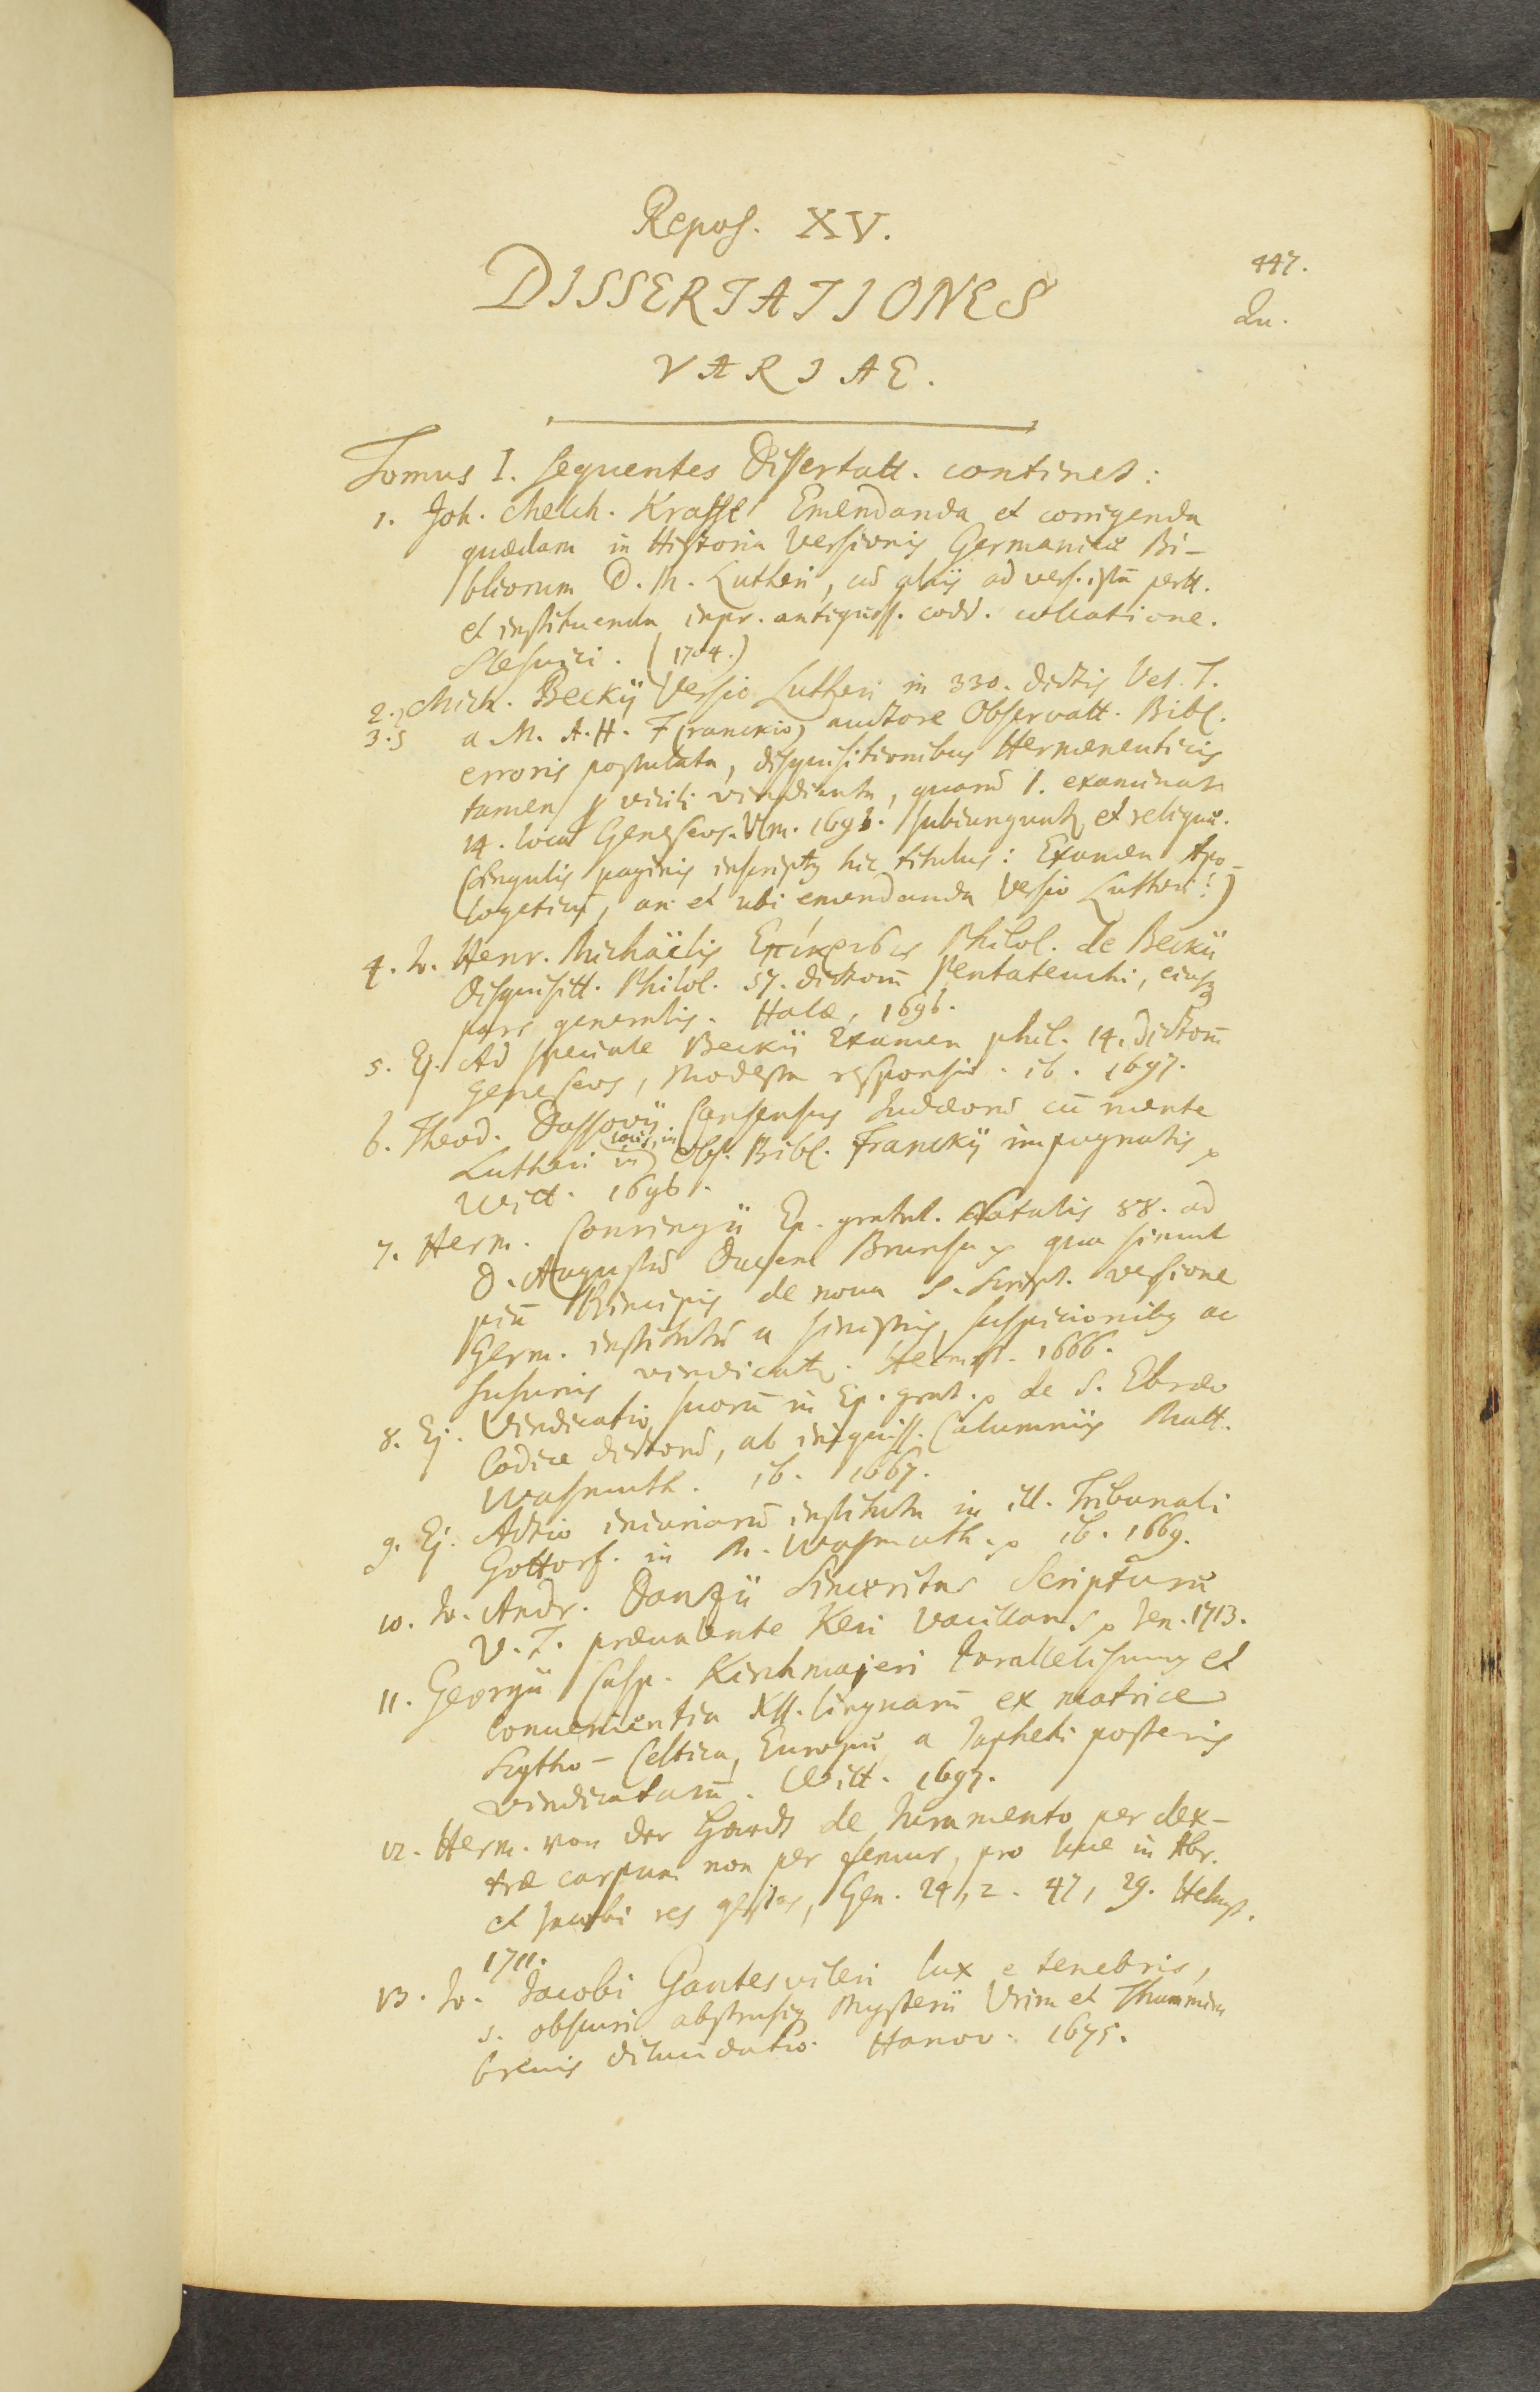 Repos. XV.
447.
DISSERTATIONES
Qu.
VARIAE.
Tomus I. sequentes Dissertatt. continet:
1. Joh. Melch. Krafft Emendanda et corrigenda
quædam in Historia Versionis Germanicæ Bi-
bliorum D. M. Lutheri, cū aliis ad vers. istā pertt.
et instituenda inpr. antiquiss. codd. collatione.
Slesvici. (1704.)
2. Mich. Beckii Versio Lutheri in 330. dictis Vet. T.
3. a M. A. H. F(ranckio) auctore Observatt. Bibl.
erroris postulata, disquisitionibus Hermeneuticis
tamen virili vindicata, quarū 1. examinat
14. loca Geneseos. Ulm. 1698. subiungunt et reliquæ.
(Singulis paginis inscript hic titulus: Examen Apo-
logeticū, an et ubi emendanda Versio Lutheri?)
4. Jo. Henr. Michaëlis Επίκρισις Philol. de Beckii
Disquisitt. Philol. 57. dictorū Pentateuchi, eiusq
pars generalis. Halæ, 1696.
5. Ej. Ad speciale Beckii Examen phil. 14. dictorū
Geneseos, Modesta responsio. ib. 1697.
6. Theod. Dassovii Consensus Judæorū cū mente
Lutheri in locis, in Obs. Bibl. Franckii impugnatis
Witt. 1696.
7. Herm. Conringii Ep. gratul. Natalis 88. ad
D. Augustū Ducem Brunsu. qua simul
piū Principis de noua S. Script. versione
Germ. institutū a sinistris suspicionibꝫ ac
susurris vindicatꝫ. Helmst. 1666.
8. Ej. Vindicatio suorū in Ep. grat. de S. Ebræo
Codice dictorū, ab iniquiss. Calumniis Matt.
Wasmuth. ib. 1667.
9. Ej. Actio iniuriarū instituta in ill. Tribunali
Gottorf. in M. Wasmuth. ib. 1669.
10. Jo. Andr. Danzii Sinceritas Scripturæ
V. T. præualente Keri vacillans Jen. 1713.
11. Georgii Casp. Kirchmajeri Parallelismus et
conuenientia XII. linguarū ex matrice
Scytho-Celtica, Europæ a Japheti posteris
vindicatarū. Witt. 1697.
12. Herm. von der Hardt de Juramento per dex-
træ carpum non per femur, pro luce in Abr.
et Jacobi res gestas, Gen. 24, 2. 47, 29. Helmst.
1711.
13. Jo. Jacobi Gantesvileri lux e tenebris,
s. obscuri abstrusiq Mysterii Vrim et Thummim
breuis dilucidatio. Hanov. 1675.